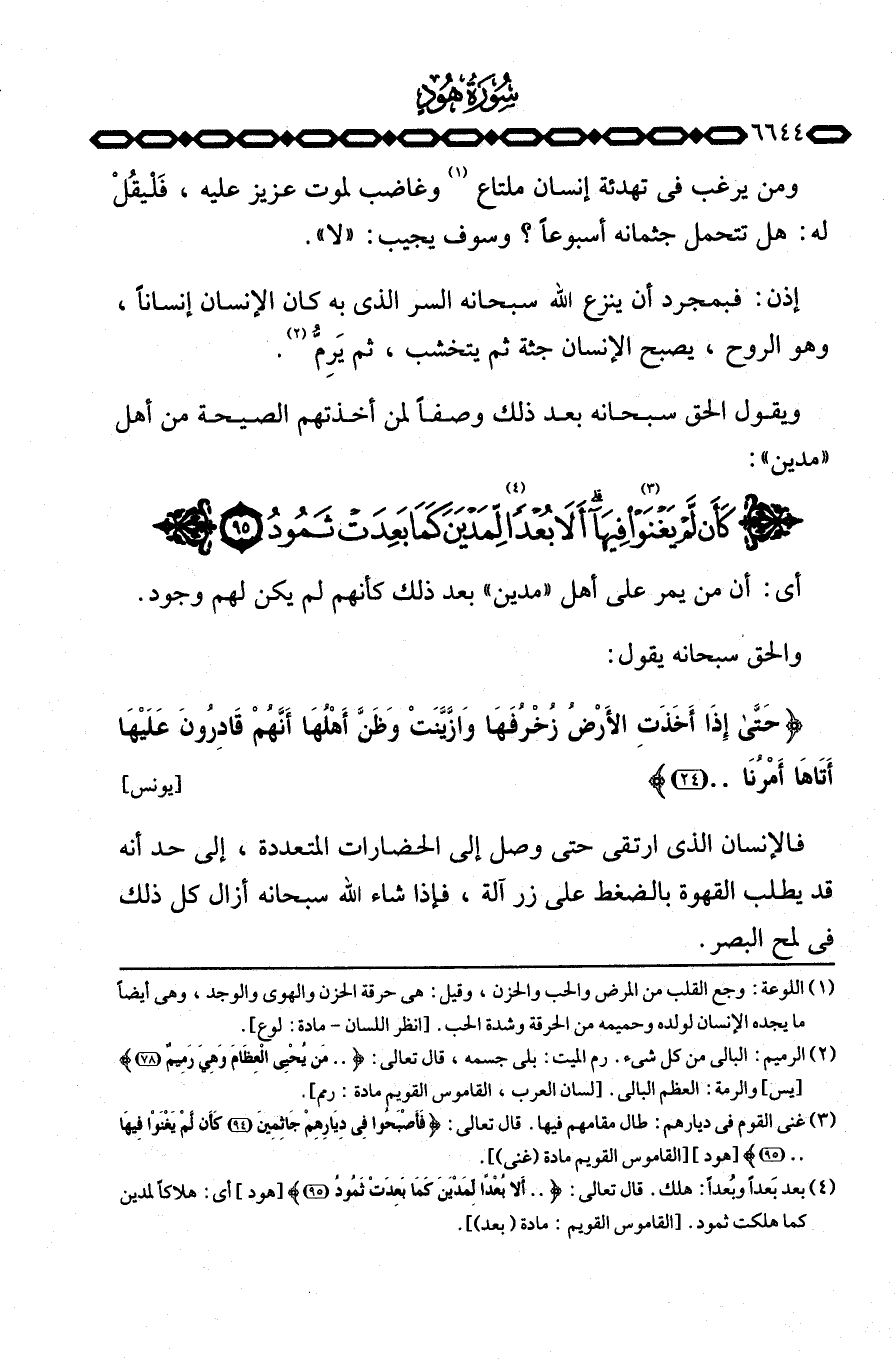 سُورَةُ هُودٍ
٦٦٤٤
ومن يرغب فى تهدئة إنسان ملتاع (١) وغاضب لموت عزيز عليه ، فَلْيقُلْ
له: هل تتحمل جثمانه أسبوعاً ؟ وسوف يجيب: «لا» .
إذن: فبمجرد أن ينزع الله سبحانه السر الذى به كان الإنسان إنساناً ،
وهو الروح ، يصبح الإنسان جثة ثم يتخشب ، ثم يَرِمُّ (٢) .
ويقول الحق سبحانه بعد ذلك وصفاً لمن أخذتهم الصيحة من أهل
«مدين»:
كَأَن لَّمْ يَغْنَوْا (٣) فِيهَآ ۗ أَلَا بُعْدًا (٤) لِّمَدْيَنَ كَمَا بَعِدَتْ ثَمُودُ ٩٥
أى: أن من يمر على أهل «مدين» بعد ذلك كأنهم لم يكن لهم وجود.
والحق سبحانه يقول:
﴿ حَتَّىٰ إِذَا أَخَذَتِ الأَرْضُ زُخْرُفَهَا وَازَّيَّنَتْ وَظَنَّ أَهْلُهَا أَنَّهُمْ قَادِرُونَ عَلَيْهَا
أَتَاهَا أَمْرُنَا .. (٢٤) ﴾ [يونس]
فالإنسان الذى ارتقى حتى وصل إلى الحضارات المتعددة ، إلى حد أنه
قد يطلب القهوة بالضغط على زر آلة ، فإذا شاء الله سبحانه أزال كل ذلك
فى لمح البصر .
(١) اللوعة: وجع القلب من المرض والحب والحزن ، وقيل: هى حرقة الحزن والهوى والوجد ، وهى أيضاً
ما يجده الإنسان لولده وحميمه من الحرقة وشدة الحب. [انظر اللسان - مادة: لوع].
(٢) الرميم: البالى من كل شىء. رم الميت: بلى جسمه ، قال تعالى: ﴿ .. مَن يُحْيِي الْعِظَامَ وَهِيَ رَمِيمٌ (٧٨) ﴾
[يس] والرمة: العظم البالى. [لسان العرب ، القاموس القويم مادة : رمم].
(٣) غنى القوم فى ديارهم: طال مقامهم فيها. قال تعالى: ﴿ فَأَصْبَحُوا فِي دِيَارِهِمْ جَاثِمِينَ (٩٤) كَأَن لَّمْ يَغْنَوْا فِيهَا
.. (٩٥) ﴾ [هود ] [القاموس القويم مادة (غنى)].
(٤) بعد بَعداً وبُعداً: هلك. قال تعالى: ﴿ .. أَلا بُعْدًا لِّمَدْيَنَ كَمَا بَعِدَتْ ثَمُودُ (٩٥) ﴾ [هود ] أى: هلاكاً لمدين
كما هلكت ثمود. [القاموس القويم : مادة ( بعد)].